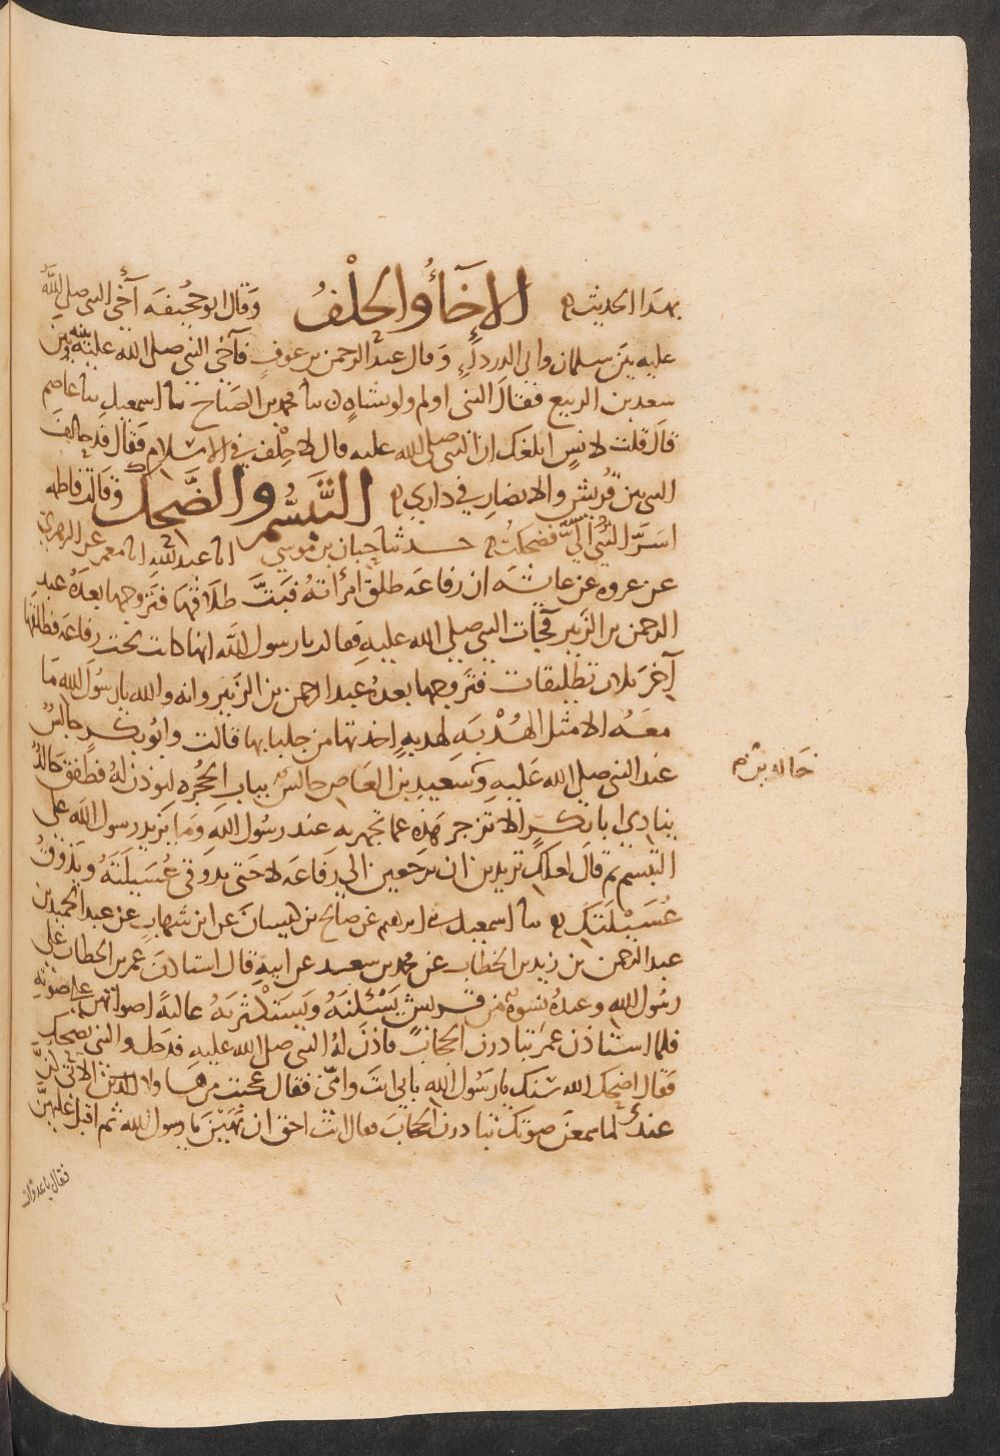 بهذا الحديث الاخآء والحلف وقال ابو جحيفه آخى النبى صلى الله
عليه بين سلمان وابى الدرداء وقال عبد الرحمن بن عوف فآخى النبى صلى الله عليه بينه وبين
سعد بن الربيع فقال النبى اولم ولو بشاه ن سا محمد بن الصباح سا اسمعيل سا عاصم
قال قلت لانس ابلغك ان النبى صلى الله عليه قال لا حلف فى الاسلام فقال قد حالف
النبى بين قريش والانصار فى دارى التبسم والضحك وقالت فاطمه
اسر النبى الى فضحكت حدثنا حبان بن موسى انا عبد الله انا معمر عن الزهرى
عن عروه عن عائشه ان رفاعه طلق امراته فبت طلاقها فتزوجها بعده عبد
الرحمن بن الزبير فجات النبى صلى الله عليه فقالت يا رسول الله انها كانت تحت رفاعه فطلقها
آخر ثلاث تطليقات فتزوجها بعده عبد الرحمن بن الزبير وانه والله يا رسول الله ما
معه الا مثل الهدبه لهدبه اخذتها من جلبابها قالت وابو بكر جالس
عند النبى صلى الله عليه وسعيد بن العاص جالس بباب الحجره ليوذن له فطفق خالد
ينادى ابا بكر الا تزجر هذه عما تجهر به عند رسول الله وما يزيد رسول الله على
التبسم ثم قال لعلك تريدين ان ترجعين الى رفاعه لا حتى تذوقى عسيلته ويذوق
عسيلتك سا اسمعيل سا ابرهيم عن صالح بن كيسان عن ابن شهاب عن عبد الحميد بن
عبد الرحمن بن زيد بن الخطاب عن محمد بن سعيد عن ابيه قال استاذن عمر بن الخطاب على
رسول الله وعنده نسوه من قريش يسئلنه ويستكثرنه عاليه اصواتهن على صوته
فلما استاذن عمر تبادرن الحجاب فاذن له النبى صلى الله عليه فدخل والنبى يضحك
فقال اضحك الله سنك يا رسول الله بابى انت وامى فقال عجبت من هاولا اللاتى كن
عندى لما سمعن صوتك تبادرن الحجاب فقال انت احق ان يهبن يا رسول الله ثم اقبل عليهن
فقال يا عدوات
خالد بن